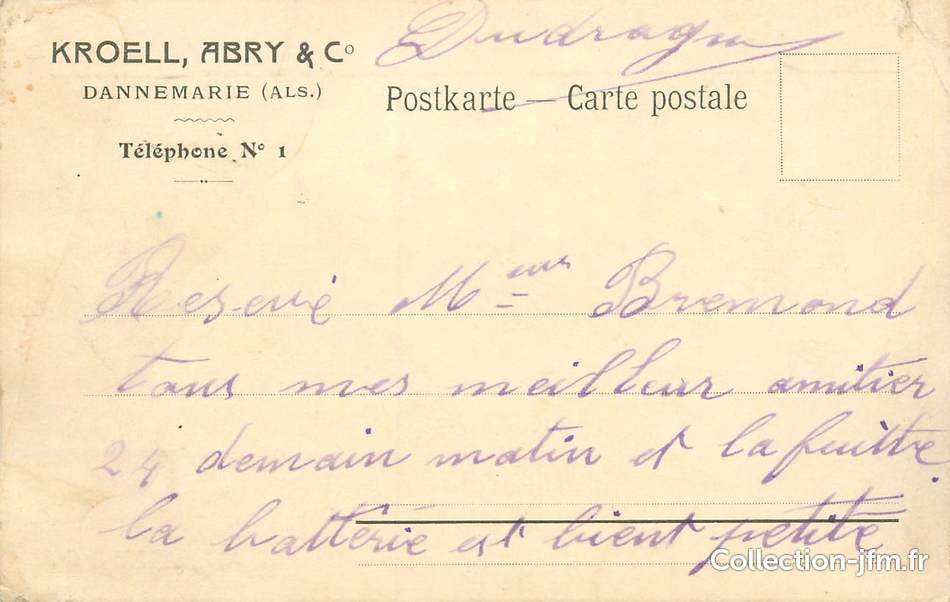 KROELL, ABRY & Cº
DANNEMARIE (ALS.)
Téléphone Nº 1
Postkarte — Carte postale
Reservé Mᵉᵘʳ Bremond
tous mes meilleur amitier
24 demain matin et la
la batterie est bient petite
Collection-jfm.fr